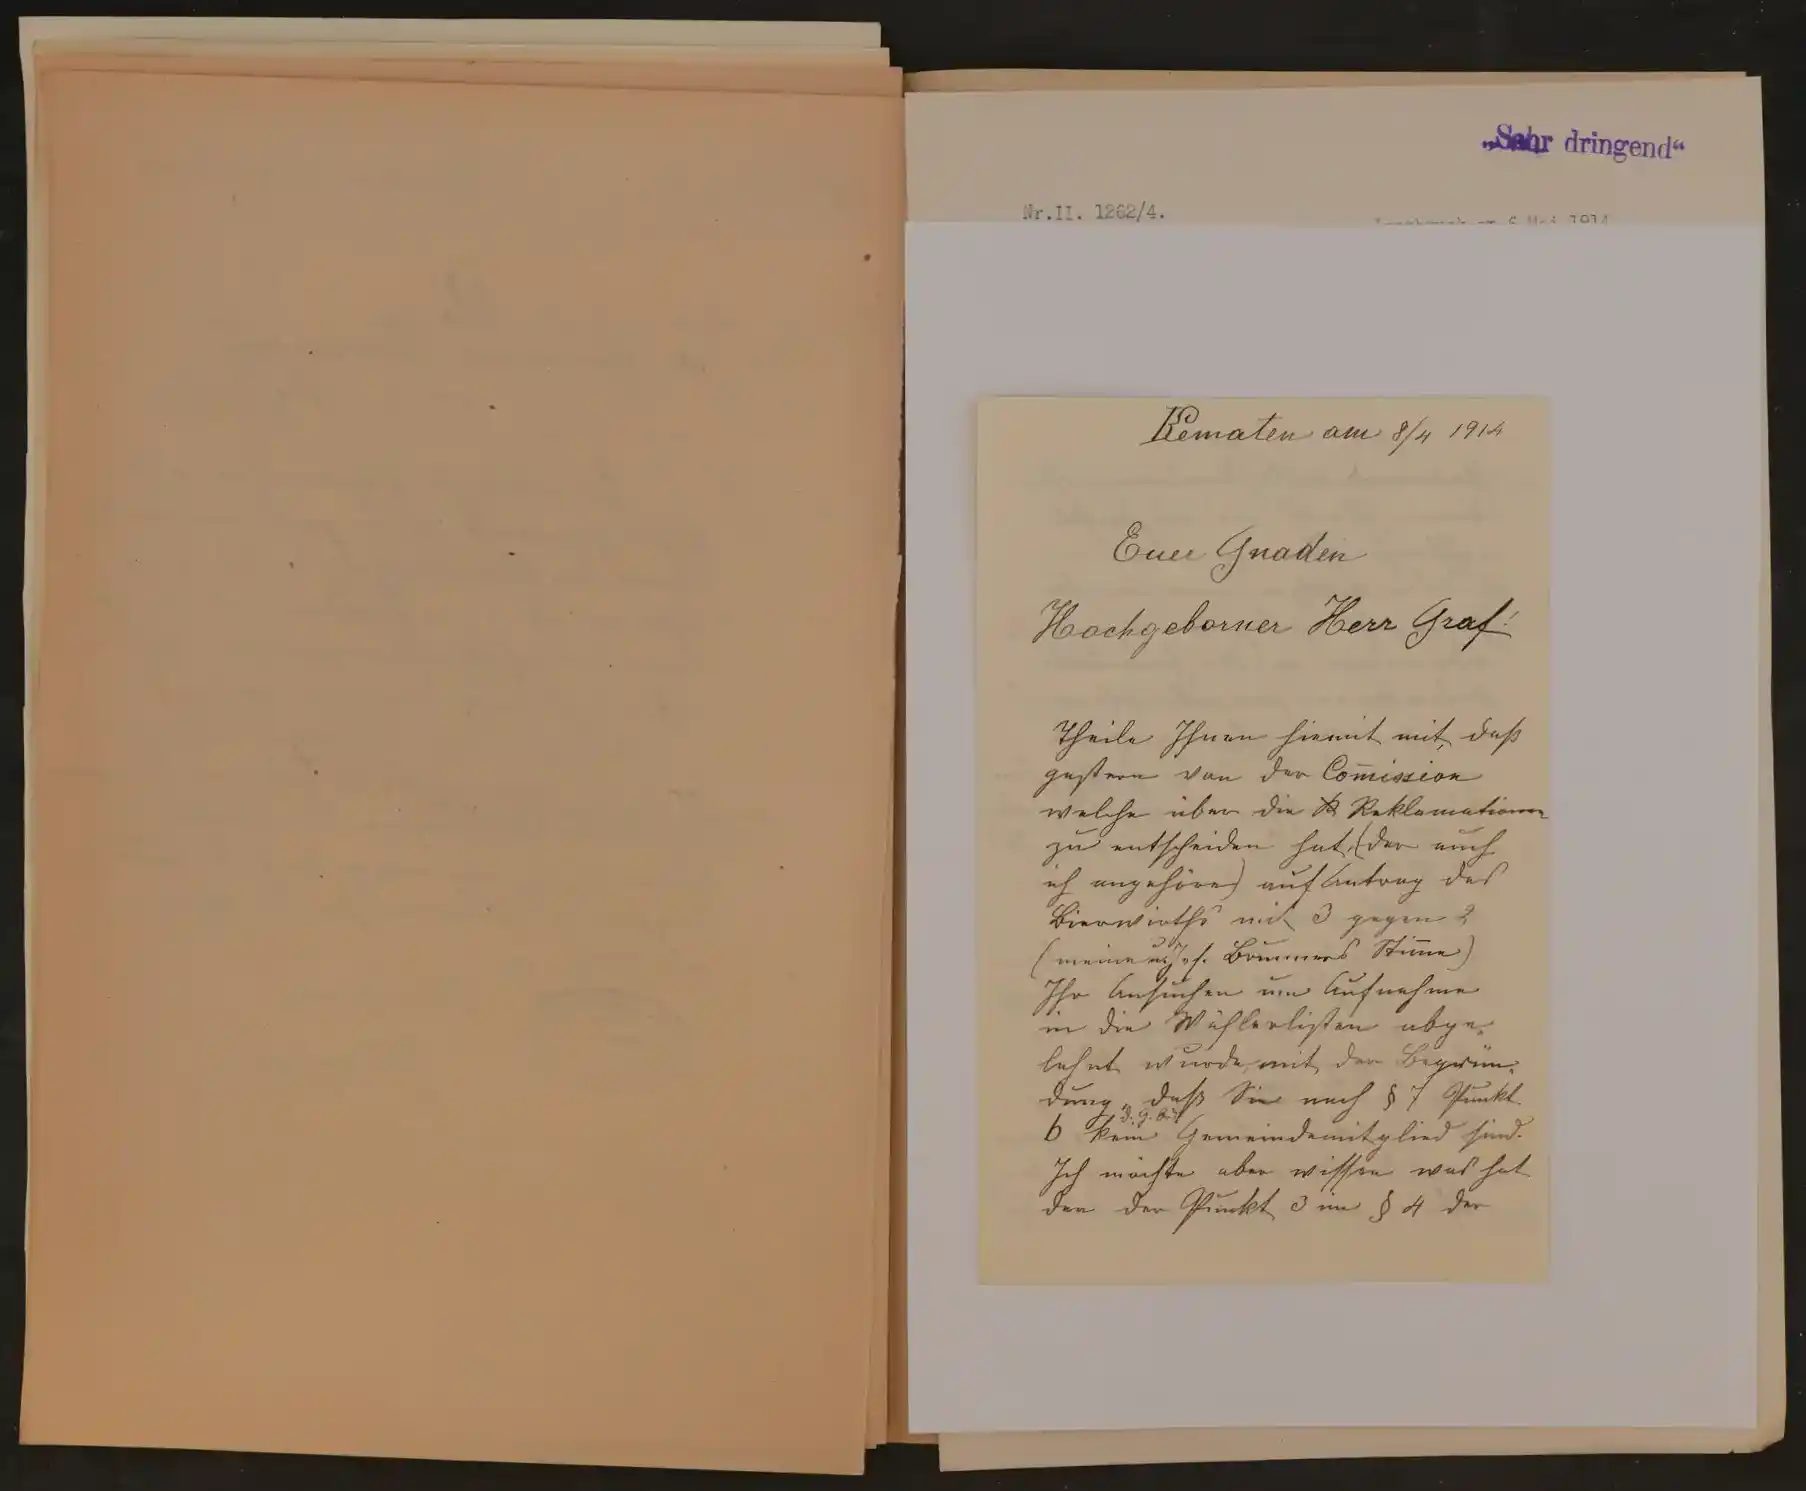 „Sehr dringend“
Nr.II. 1262/4.
Innsbruck am 6 Mai 1914
Kematen am 8/4 1914
Euer Gnaden
Hochgeborner Herr Graf!
Theile Ihnen hiemit mit, daß
gestern von der Com̅ission
welche über die Reklamationen
zu entscheiden hat, (der auch
ich angehöre) auf Antrag des
Bierwirths mit 3 gegen 2
(meine u. Jos. Brunners Stim̅e)
Ihr Ansuchen um Aufnahme
in die Wählerlisten abge-
lehnt wurde, mit der Begrün-
dung, daß Sie nach § 7 Punkt
6 d. G. O. kein Gemeindemitglied sind.
Ich möchte aber wissen was hat
den der Punkt 3 im § 4 der